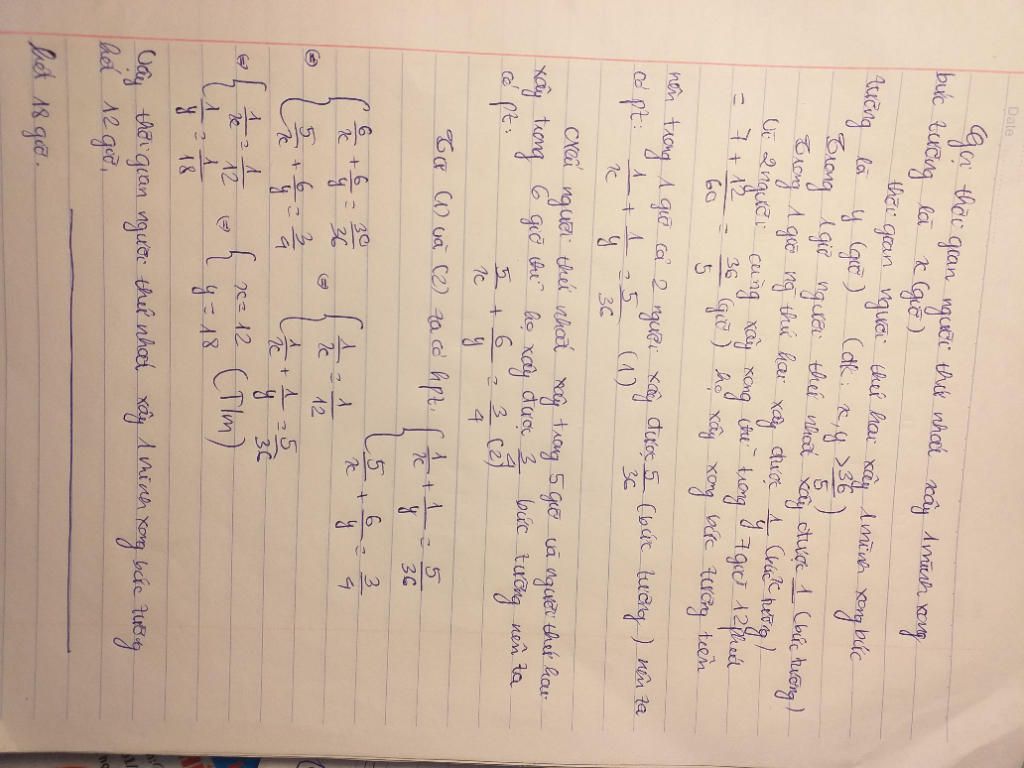 Date
Gọi thời gian người thứ nhất xây 1 mình xong
bức tường là x (giờ)
thời gian người thứ hai xây 1 mình xong bức
tường là y (giờ) (đk: x, y > 36/5)
Trong 1 giờ người thứ nhất xây được 1/x (bức tường)
Trong 1 giờ ng thứ hai xây được 1/y (bức tường)
Vì 2 người cùng xây xong thì trong 7 giờ 12 phút
= 7 + 12/60 = 36/5 (giờ) họ xây xong bức tường trên
nên trong 1 giờ cả 2 người xây được 5/36 (bức tường) nên ta
có pt: 1/x + 1/y = 5/36 (1)
Nếu người thứ nhất xây trong 5 giờ và người thứ hai
xây trong 6 giờ thì họ xây được 3/4 bức tường nên ta
có pt: 5/x + 6/y = 3/4 (2)
Từ (1) và (2) ta có hpt: { 1/x + 1/y = 5/36
5/x + 6/y = 3/4
{ 6/x + 6/y = 30/36
⇔ { 5/x + 6/y = 3/4 ⇔ { 1/x = 1/12
1/x + 1/y = 5/36
⇔ { 1/x = 1/12 ⇔ { x = 12
1/y = 1/18 y = 18 (Tlm)
Vậy thời gian người thứ nhất xây 1 mình xong bức tường
hết 12 giờ,
hết 18 giờ.